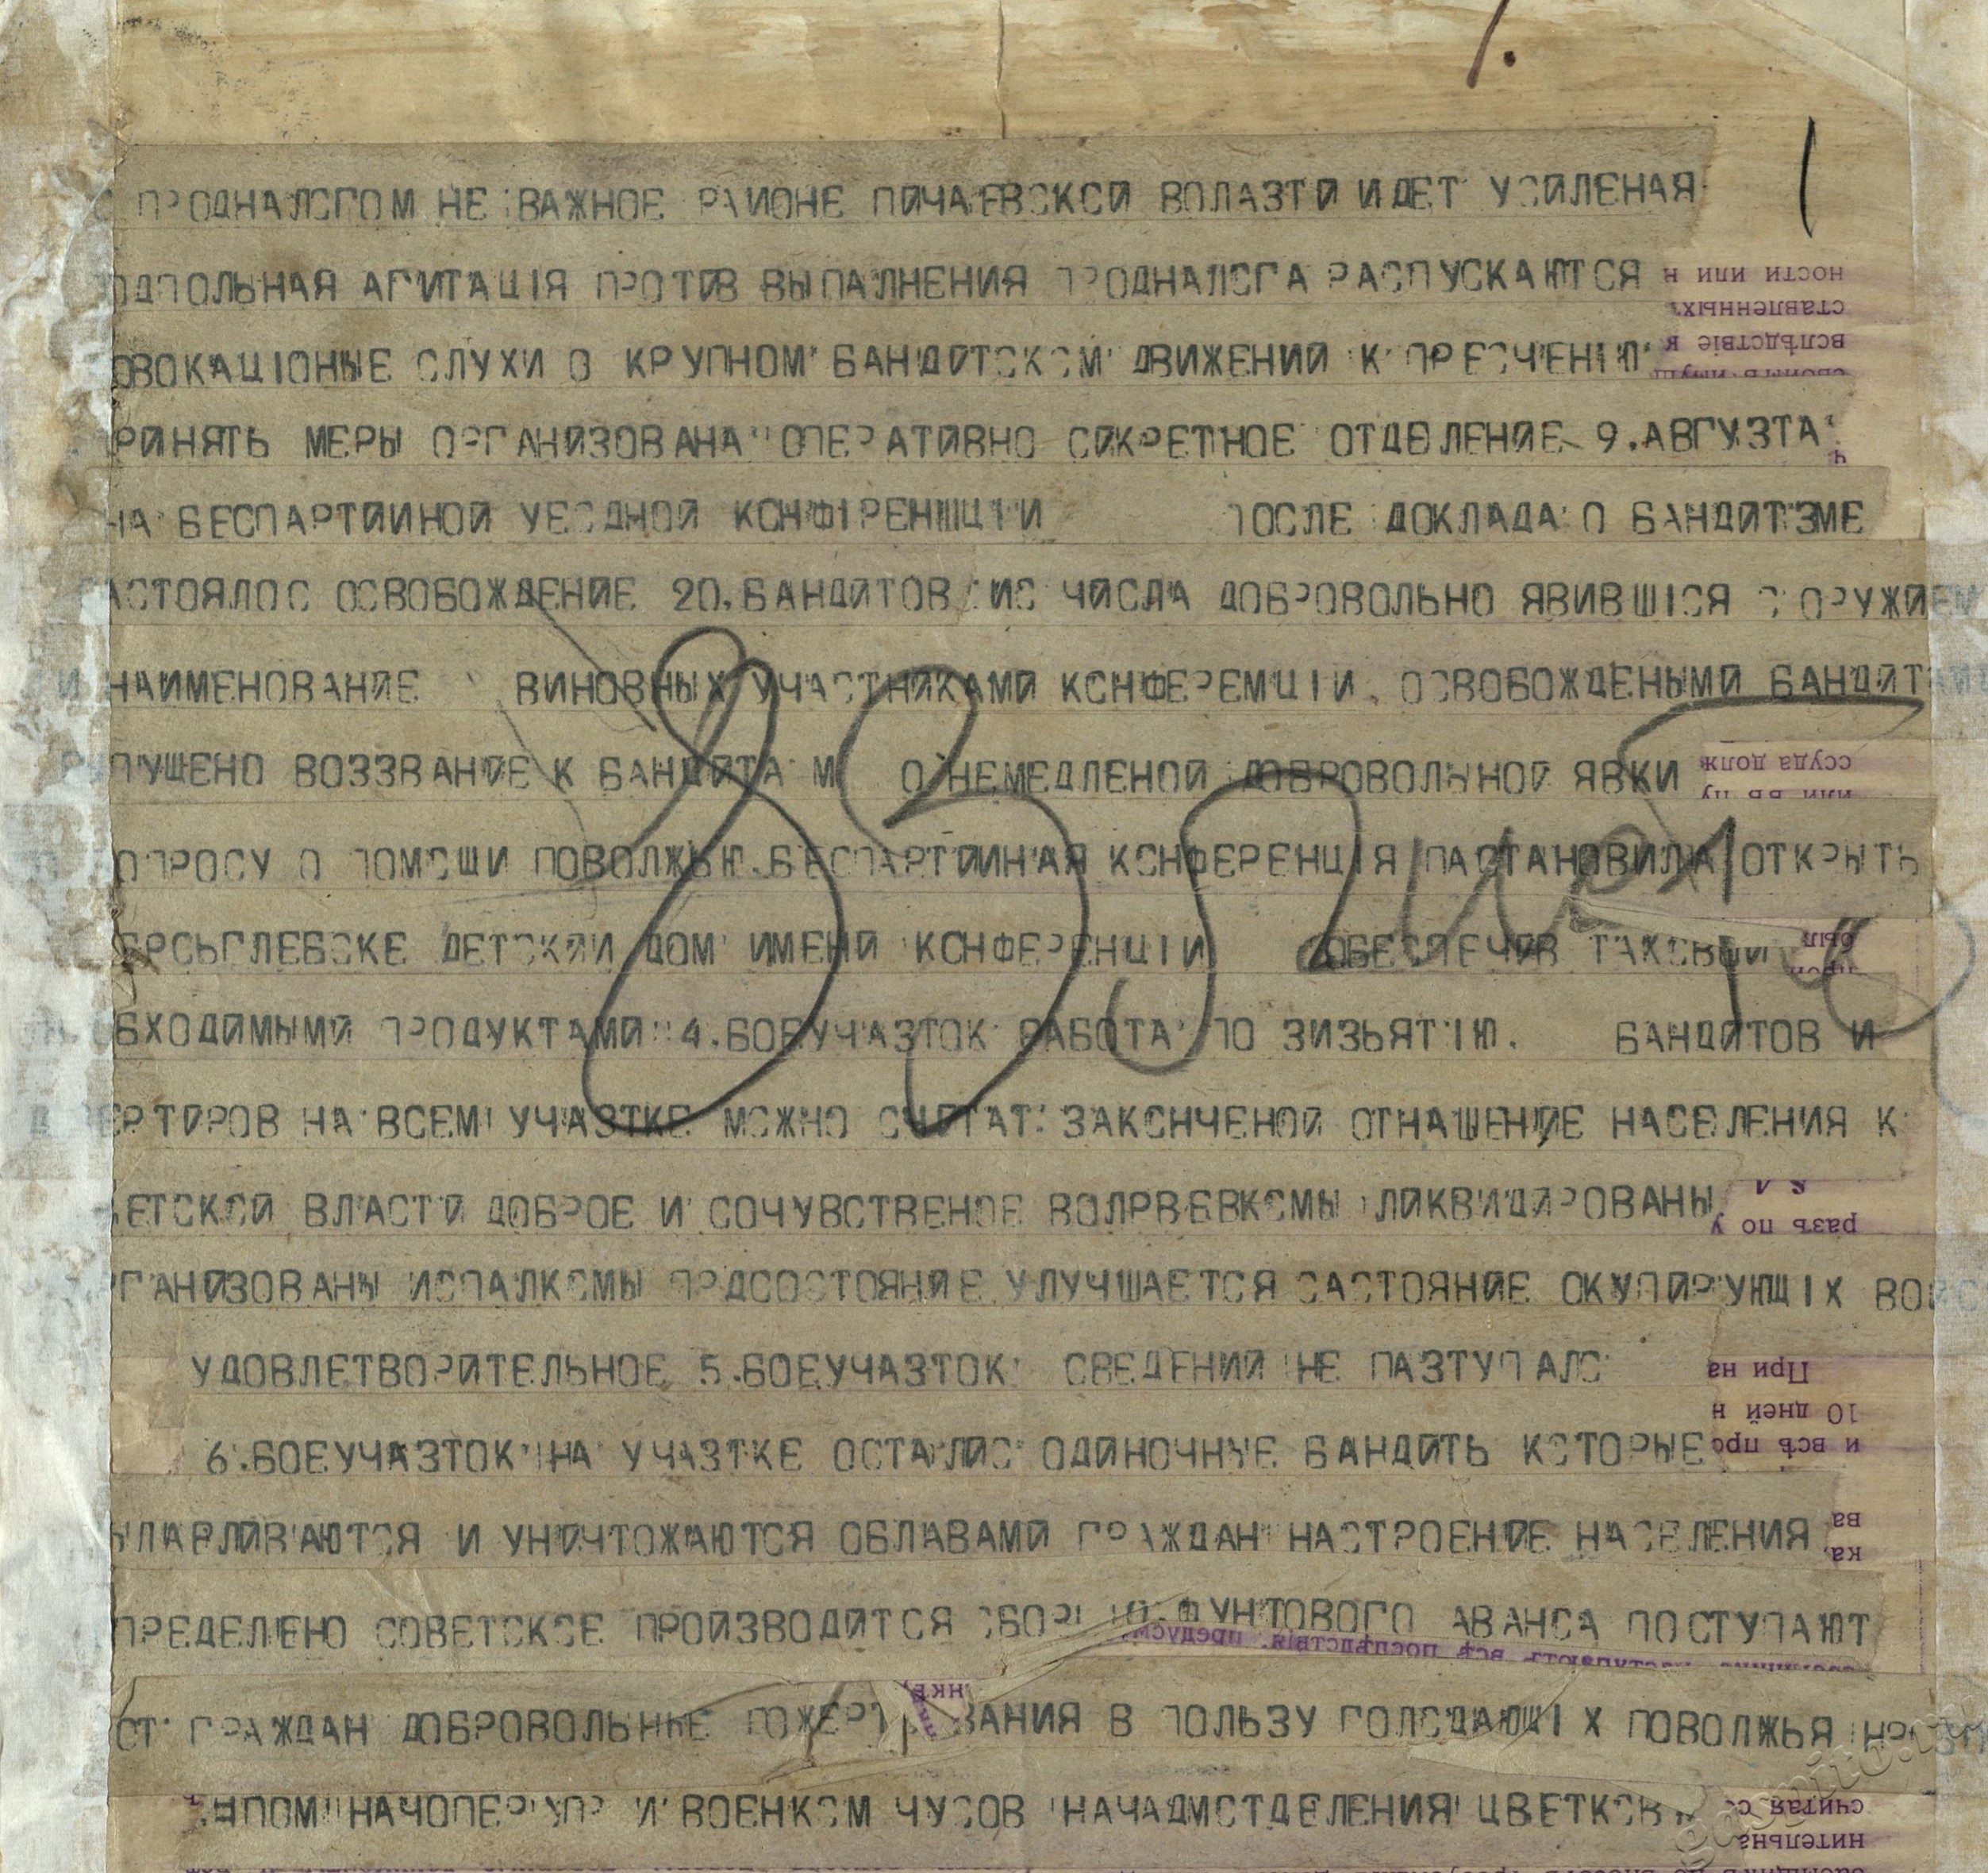 С ПРОДНАЛОГОМ НЕ ВАЖНОЕ РАИОНЕ ПИЧАЕВСКОЙ ВОЛАЗТИ ИДЕТ УСИЛЕНАЯ
ОДПОЛЬНАЯ АГИТАЦІЯ ПРОТИВ ВЫПАЛНЕНИЯ ПРОДНАЛОГА РАСПУСКАЮТСЯ
ОВОКАЦІОНЫЕ СЛУХИ О КРУПНОМ БАНДИТСКОМ ДВИЖЕНИИ К ПРЕСЧЕНІЮ
РИНЯТЬ МЕРЫ ОРГАНИЗОВАНА ОПЕРАТИВНО СИКРЕТНОЕ ОТДЕЛЕНИЕ 9.АВГУЗТА
НА БЕСПАРТИИНОЙ УЕЗДНОЙ КОНФІРЕНЦІИ ПОСЛЕ ДОКЛАДА О БАНДИТЗМЕ
АСТОЯЛОС ОСВОБОЖДЕНИЕ 20.БАНДИТОВ ИС ЧИСЛА ДОБРОВОЛЬНО ЯВИВШІСЯ С ОРУЖИЕМ
И НАИМЕНОВАНИЕ ВИНОВНЫХ УЧАСТНИКАМИ КОНФЕРЕМЦІИ. ОСВОБОЖДЕНЫМИ БАНДИТАМИ
ПУЩЕНО ВОЗЗВАНИЕ К БАНДИТАМ О НЕМЕДЛЕНОЙ ДОБРОВОЛЬНОЙ ЯВКИ
ОПРОСУ О ПОМОЩИ ПОВОЛЖЬЮ.БЕСПАРТИИНАЯ КОНФЕРЕНЦІЯ ПАСТАНОВИЛА ОТКРЫТЬ
БРСЬГЛЕБСКЕ ДЕТСКИЙ ДОМ ИМЕНИ КОНФЕРЕНЦІИ ОБЕСПЕЧИВ ТАКОВОЙ
ОБХОДИМЫМИ ПРОДУКТАМИ 4.БОЕУЧАЗТОК РАБОТА ПО ЗИЗЬЯТІЮ. БАНДИТОВ И
ЕРТИРОВ НА ВСЕМ УЧАЗТКЕ МОЖНО СЧИТАТ ЗАКОНЧЕНОЙ ОТНАШЕНИЕ НАСЕЛЕНИЯ К
ВЕТСКОЙ ВЛАСТИ ДОБРОЕ И СОЧУВСТВЕНОЕ ВОЛРВЕВКОМЫ ЛИКВИДИРОВАНЫ
РГАНИЗОВАНЫ ИСПАЛКОМЫ ПРДСОСТОЯНИЕ УЛУЧШАЕТСЯ САСТОЯНИЕ ОКУПИРУЮЩІХ ВОЙС
УДОВЛЕТВОРИТЕЛЬНОЕ 5.БОЕУЧАЗТОК СВЕДЕНИЙ НЕ ПАЗТУПАЛО
6.БОЕУЧАЗТОК НА УЧАЗТКЕ ОСТАЛИС ОДИНОЧНЫЕ БАНДИТЬ КОТОРЫЕ
ЫЛАВЛИВАЮТСЯ И УНИЧТОЖАЮТСЯ ОБЛАВАМИ ГРАЖДАН НАСТРОЕНИЕ НАСЕЛЕНИЯ
ПРЕДЕЛЕНО СОВЕТСКОЕ ПРОИЗВОДИТСЯ СБОР ФУНТОВОГО АВАНСА ПОСТУПАЮТ
ОТ ГРАЖДАН ДОБРОВОЛЬНЫЕ ПОЖЕРТВОВАНИЯ В ПОЛЬЗУ ГОЛОДАЮЩІХ ПОВОЛЖЬЯ
НПОМ НАЧОПЕРУПР И ВОЕНКОМ ЧУСОВ НАЧАДМОТДЕЛЕНИЯ ЦВЕТКОВ
ности или н
ставленныхъ
вслѣдствіе к
ссуда долж
разъ по у
При на
10 дней н
и всѣ про
ва
ка
всѣ послѣдствія, предусм
считая со
нительна
gaspito.ru